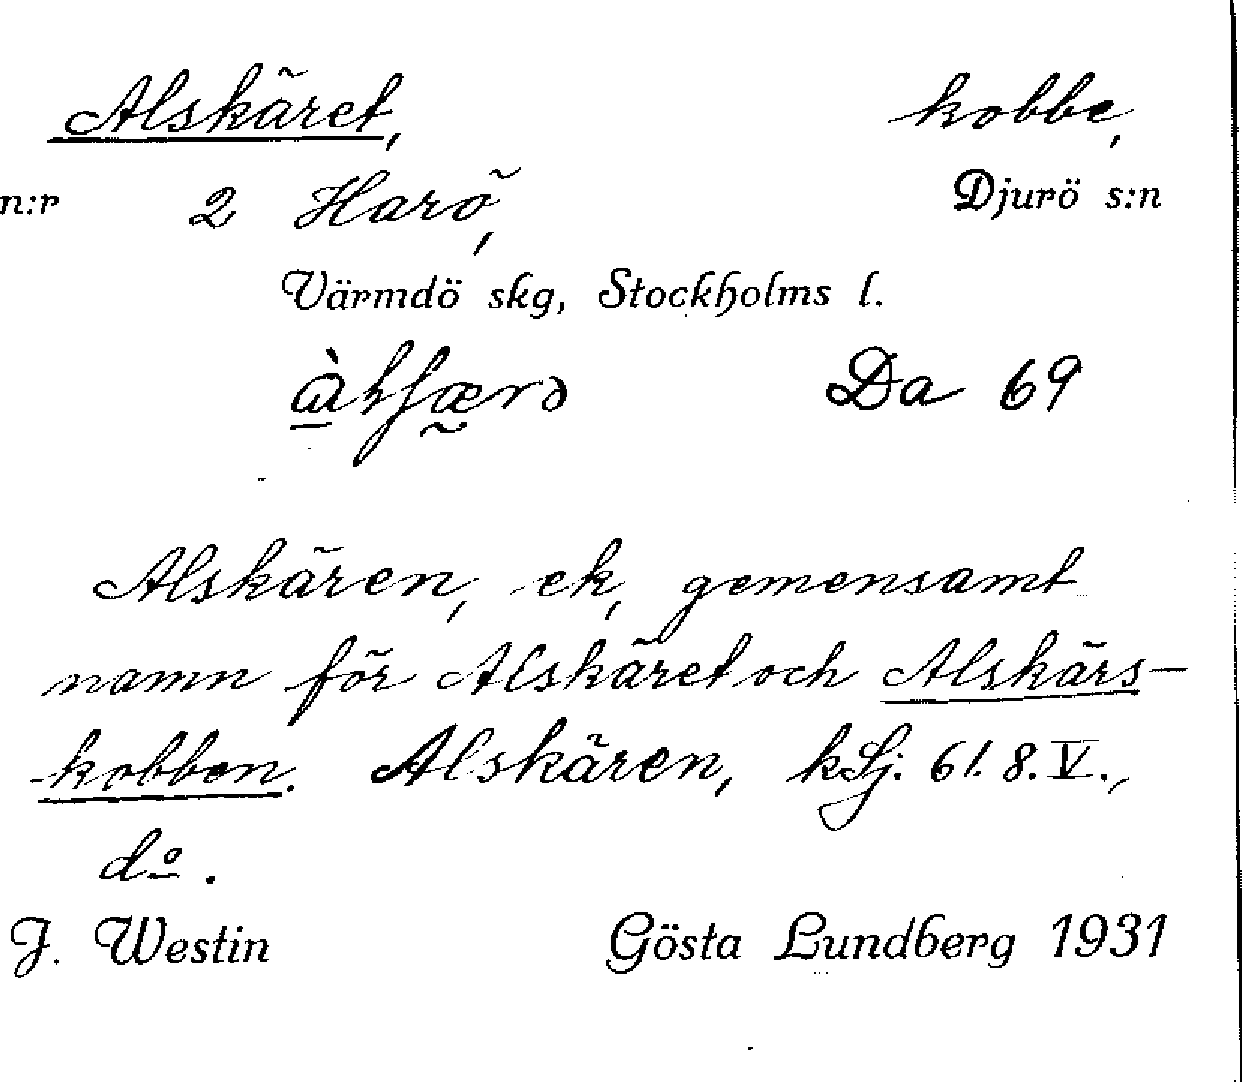 Alskäret, kobbe,
n:r 2 Harö, Djurö s:n
Värmdö skg, Stockholms l.
Da 69
Alskären, ek, gemensamt
namn för Alskäret och Alskärs-
kobben. Alskären, kSj. 61. 8. V.,
do.
J. Westin Gösta Lundberg 1931